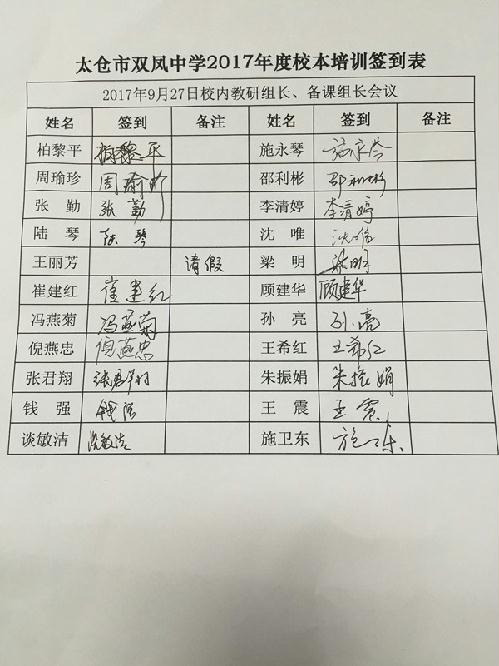 太仓市双凤中学2017年度校本培训签到表
2017年9月27日校内教研组长、备课组长会议
姓名 签到 备注 姓名 签到 备注
柏黎平 柏黎平 施永琴 施永琴
周瑜珍 周瑜珍 邵利彬 邵利彬
张勤 张勤 李清婷 李清婷
陆琴 陆琴 沈唯 沈唯
王丽芳 请假 梁明 梁明
崔建红 崔建红 顾建华 顾建华
冯燕菊 冯燕菊 孙亮 孙亮
倪燕忠 倪燕忠 王希红 王希红
张君翔 张君翔 朱振娟 朱振娟
钱强 钱强 王震 王震
谈敏洁 谈敏洁 施卫东 施卫东